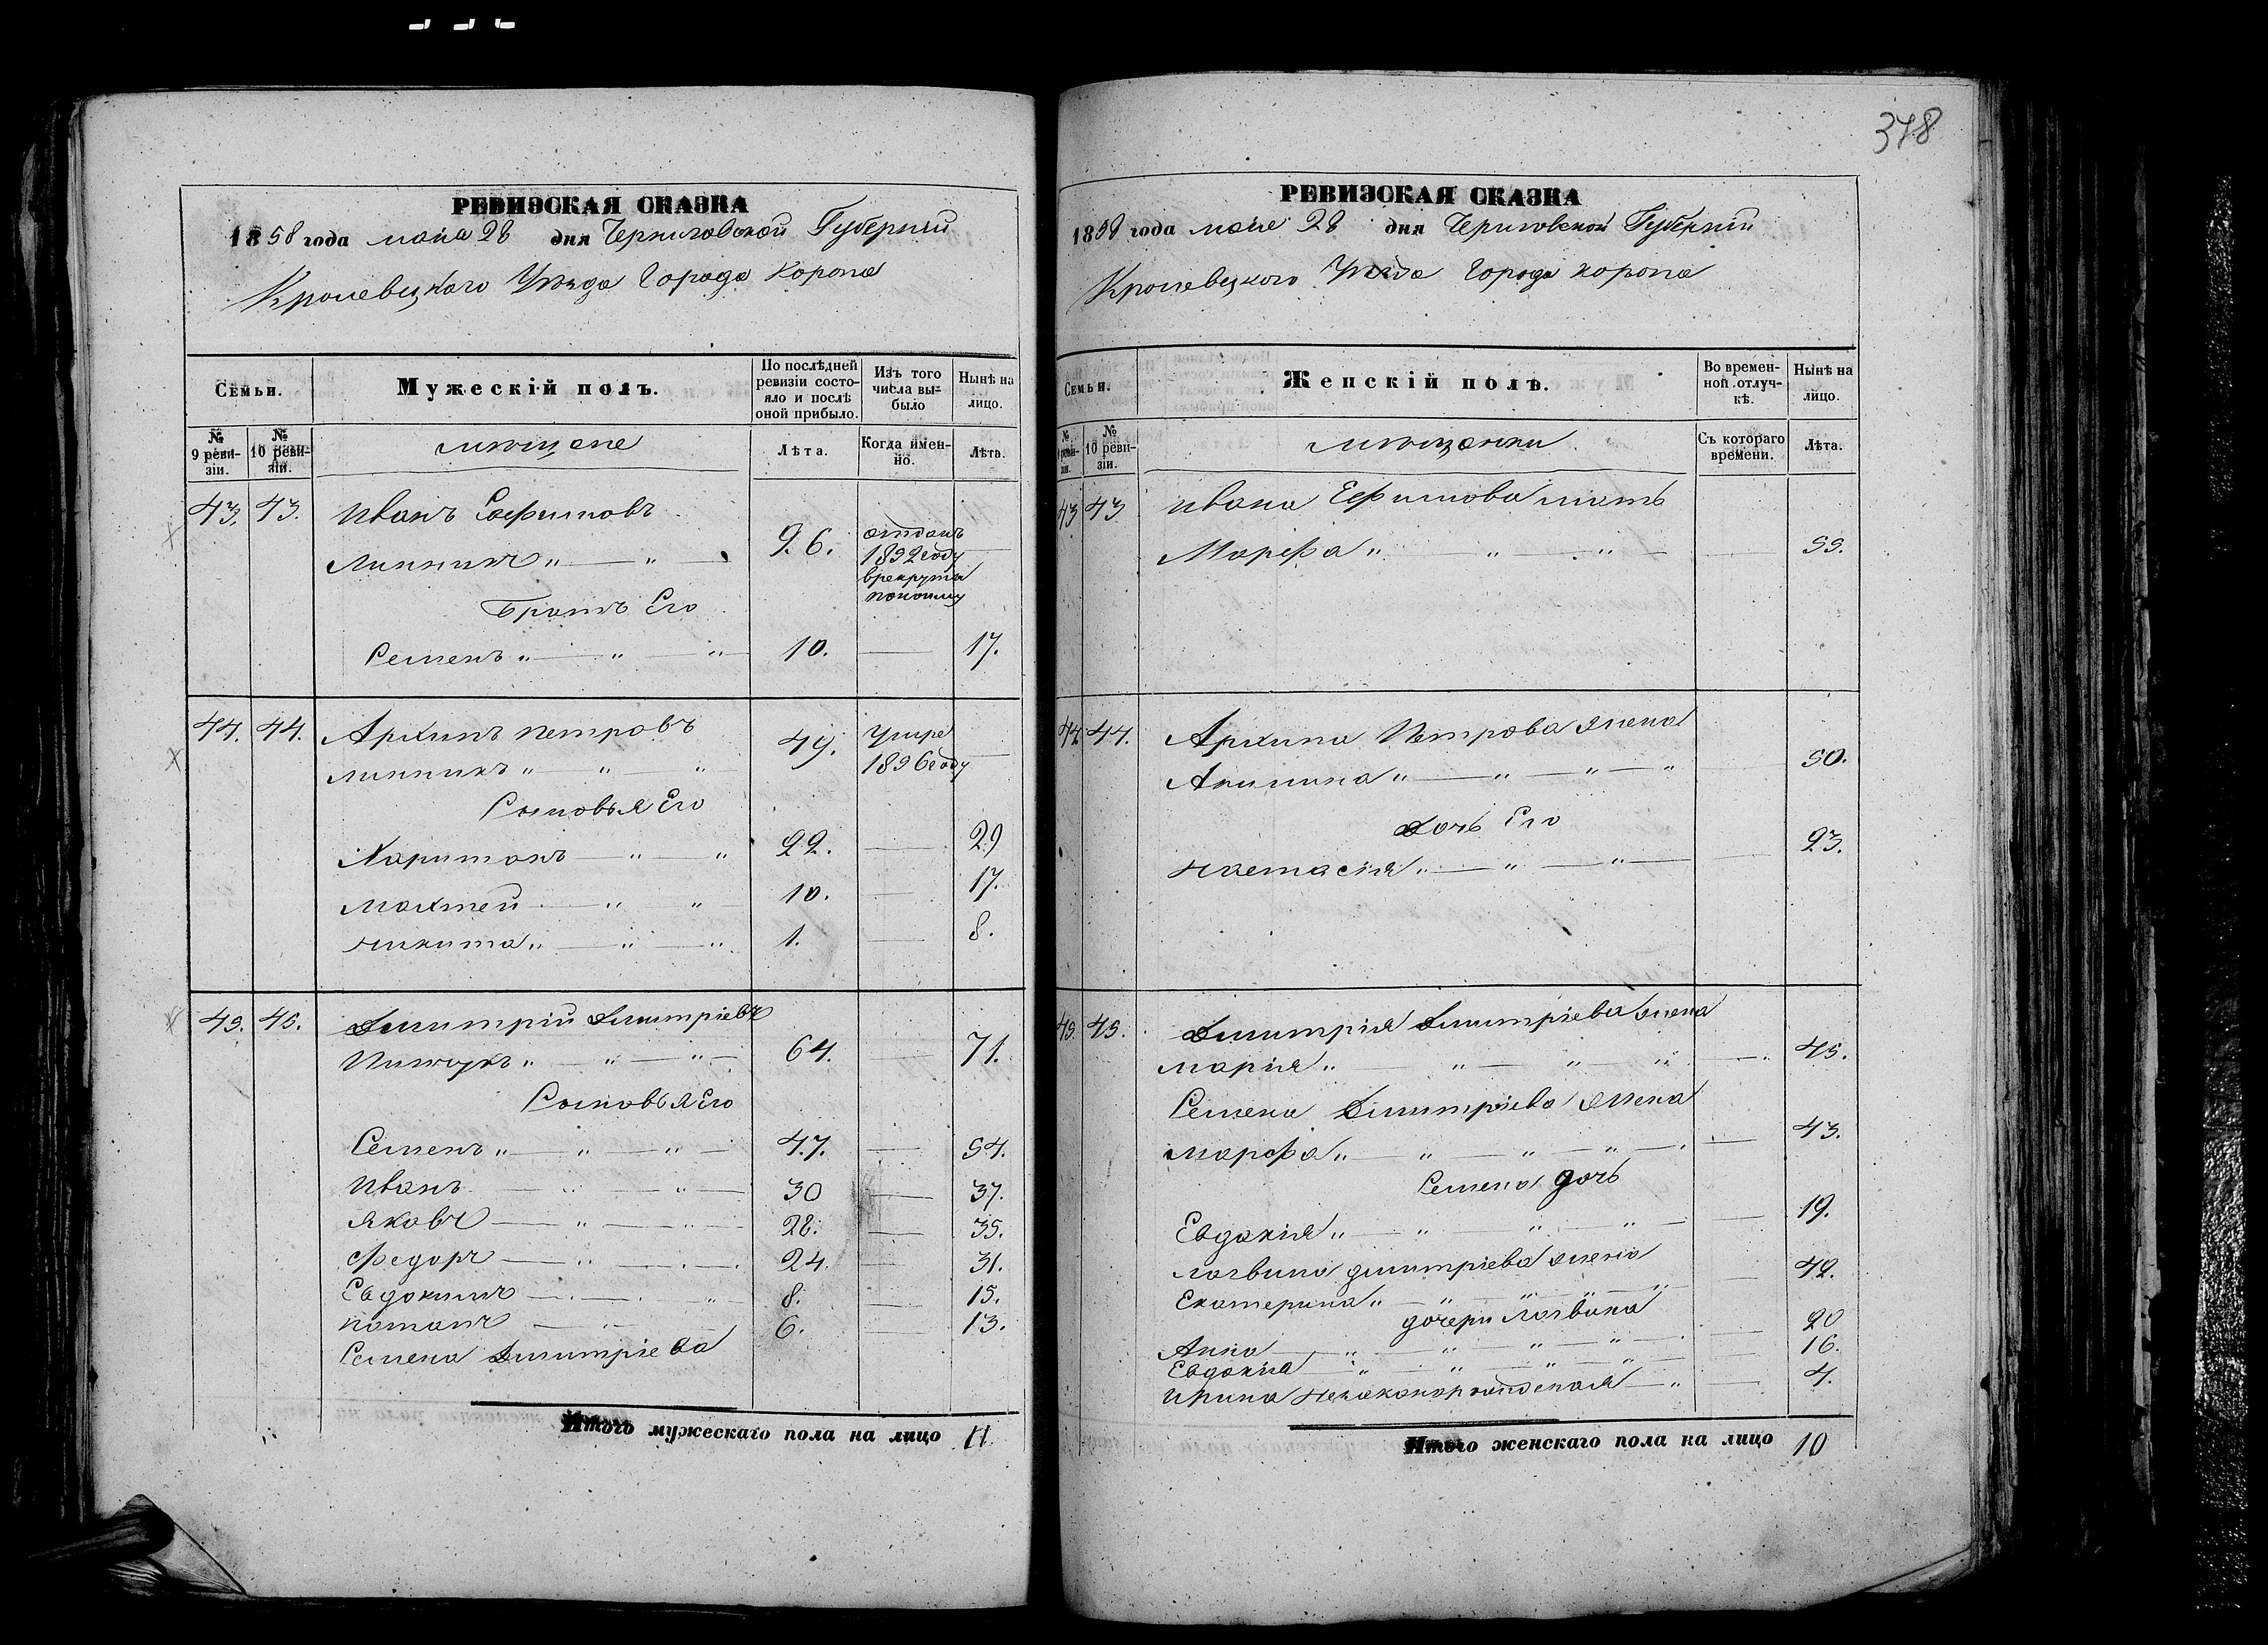 378
РЕВИЗСКАЯ СКАЗКА
1858 года мaiя 28 дня Черниговской Губернiи
Кролевецкого Уѣзда Города Коропа
Семьи.
Мужескій полъ.
По послѣдней ревизіи состояло и послѣ оной прибыло.
Изъ того числа выбыло
Нынѣ на лицо.
№ 9 ревизіи.
№ 10 ревизіи.
мѣщане
Лѣта.
Когда именно.
Лѣта.
43. 43. Иванъ Еѳимовъ
Линникъ „ — „ — 26. отданъ 1852 году в рекруты
Братъ Его
Семенъ „ — „ — „ 10. — 17.
44. 44. Архипъ Петровъ
Линникъ „ — „ — „ 49. Умре 1856 году —
Сыновья Его
Харитонъ — „ — „ 22. — 29
Махтей — „ — „ 10. — 17.
Никита „ — „ — „ 1. — 8.
45. 45. Дмитрій Дмитріевъ
„ — „ — „ 64. — 71.
Сыновья Его
Семенъ „ — „ — „ 47. — 54.
Иванъ — „ — „ 30 — 37.
Яковъ — „ — „ 28. — 35.
Федоръ — „ — 24. — 31.
Евдокимъ — „ — „ 8. — 15.
Потапъ — „ — 6. — 13.
Семена Дмитріева
Итого мужескаго пола на лицо 11
РЕВИЗСКАЯ СКАЗКА
1858 года маiя 28 дня Черниговской Губернiи
Кролевецкого Уѣзда Города Коропа
Семьи.
Женскій полъ.
Во временной отлучкѣ.
Нынѣ на лицо.
№ 9 ревизіи.
№ 10 ревизіи.
мѣщанки
Съ котораго времени.
Лѣта.
43 43 Ивана Ефимова мать
Марфа „ — „ — „ — 55.
44 44. Архипа Петрова жена
Акилина „ — „ — „ — „ 50.
Дочь Его
Настасія „ — „ — „ — 23.
45. 45. Дмитрія Дмитріева жена
Марія „ — „ — „ — „ 45.
Семена Дмитріева жена
Марфа „ — „ — „ — „ — 43.
Семена дочь
Евдокія „ — „ — „ — „ — 19.
Логвина Дмитріева жена
Екатерина „ — „ — „ — „ 42.
дочери Логвина
Анна — „ — „ — „ — „ 20
Евдокія — „ — „ — „ — „ 16.
Ирина — „ — 4.
Итого женскаго пола на лицо 10